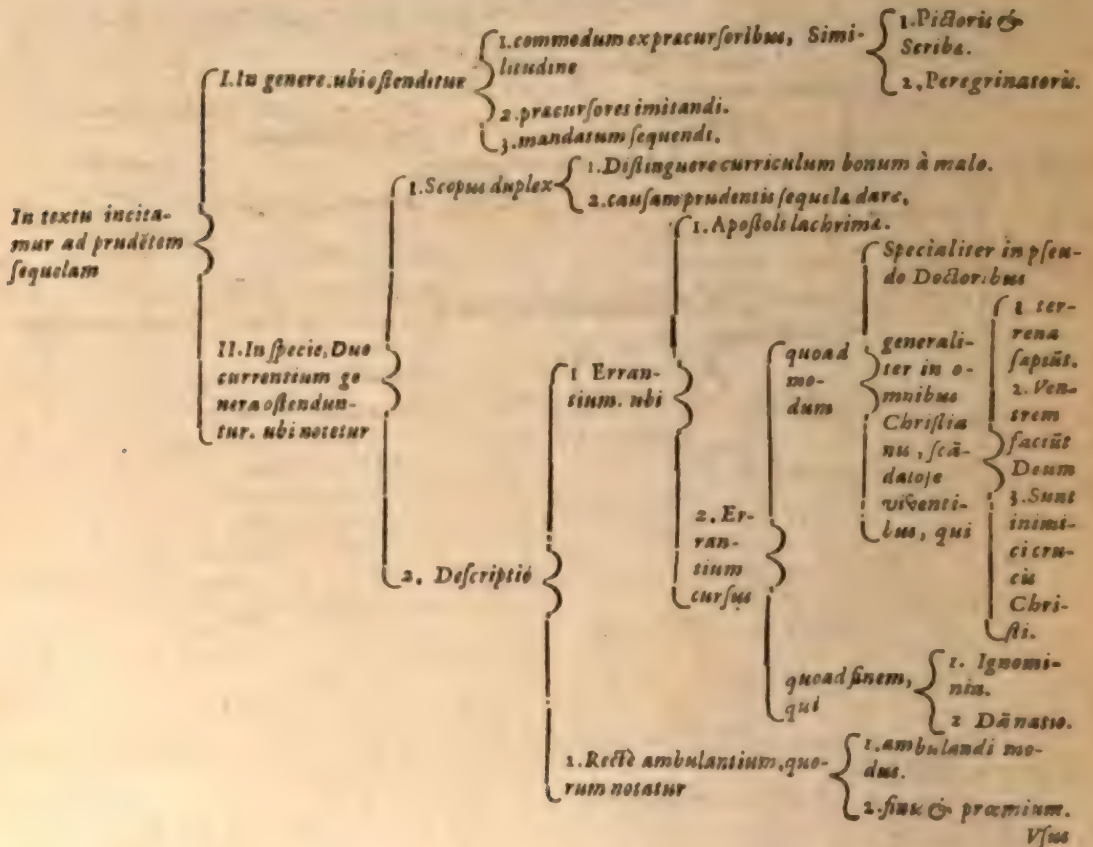 In textu incita-
mur ad prudētem
ſequelam
I. In genere. ubi oſtenditur
1. commodum ex præcurſoribus, Simi-
litudine
1. Pictoris &
Scriba.
2. Peregrinatoris.
2. præcurſores imitandi.
3. mandatum ſequendi.
II. In ſpecie, Duo
currentium ge
nera oſtendun-
tur. ubi notetur
1. Scopus duplex
1. Diſtinguere curriculum bonum à malo.
2. cauſam prudentis ſequela dare,
2. Deſcriptiō
1 Erran-
tium. ubi
1. Apoſtoli lachrima.
2. Er-
ran-
tium
curſus
quoad
mo-
dum
Specialiter in pſeu-
do Doctoribus
generali-
ter in o-
mnibus
Chriſtia
nis, ſcā-
daloſe
viventi-
bus, qui
1 ter-
rena
ſapiūt.
2. Ven-
trem
faciūt
Deum
3. Sunt
inimi-
ci cru-
cis
Chri-
ſti.
quoad finem,
qui
1. Ignomi-
nia.
2 Dānatio.
2. Rectè ambulantium, quo-
rum notatur
1. ambulandi mo-
dus.
2. finis & præmium.
Vſus